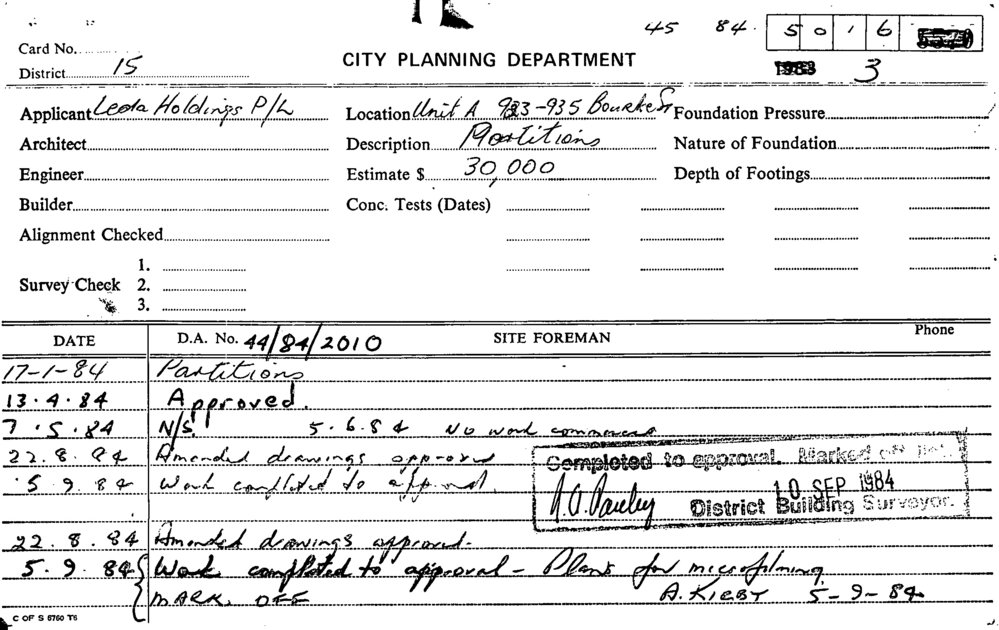 45 84. 5016
Card No.
District 15
CITY PLANNING DEPARTMENT
1983 3
Applicant Leda Holdings P/L Location Unit A 923-935 Bourke St Foundation Pressure
Architect Description Partitions Nature of Foundation
Engineer Estimate $ 30,000 Depth of Footings
Builder Conc. Tests (Dates)
Alignment Checked
1.
Survey Check 2.
3.
DATE D.A. No. 44/84/2010 SITE FOREMAN Phone
17-1-84 Partitions
13.4.84 Approved.
7.5.84 N/S. 5.6.84 No work commenced
22.8.84 Amended drawings approved
5.9.84 Work completed to approval.
Completed to approval. Marked off
10 SEP 1984
District Building Surveyor.
22.8.84 Amended drawings approved.
5.9.84 Work completed to approval - Plans for microfilming
MARK OFF A. KIRBY 5-9-84
C OF S 5750 T6